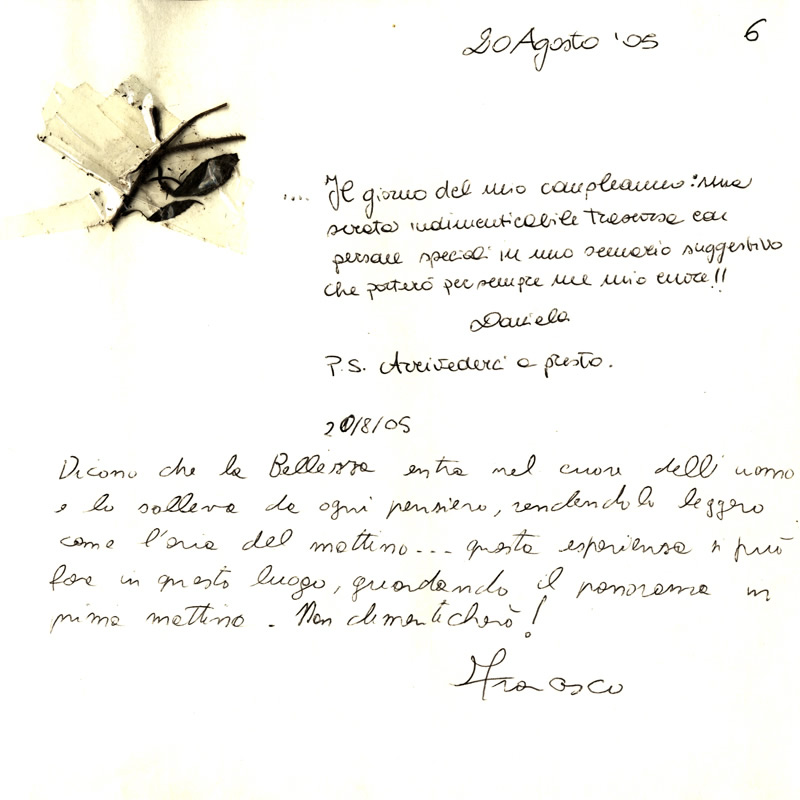 20 Agosto '05
6
.... Il giorno del mio compleanno: una
serata indimenticabile trascorsa con
persone speciali in uno scenario suggestivo
che porterò per sempre nel mio cuore!!
Daniela
P.S. Arrivederci a presto.
20/8/05
Dicono che la Bellezza entra nel cuore dell'uomo
e lo solleva da ogni pensiero, rendendolo leggero
come l'aria del mattino... questa esperienza si può
fare in questo luogo, guardando il panorama in
prima mattina. Non dimenticherò!
Francesco